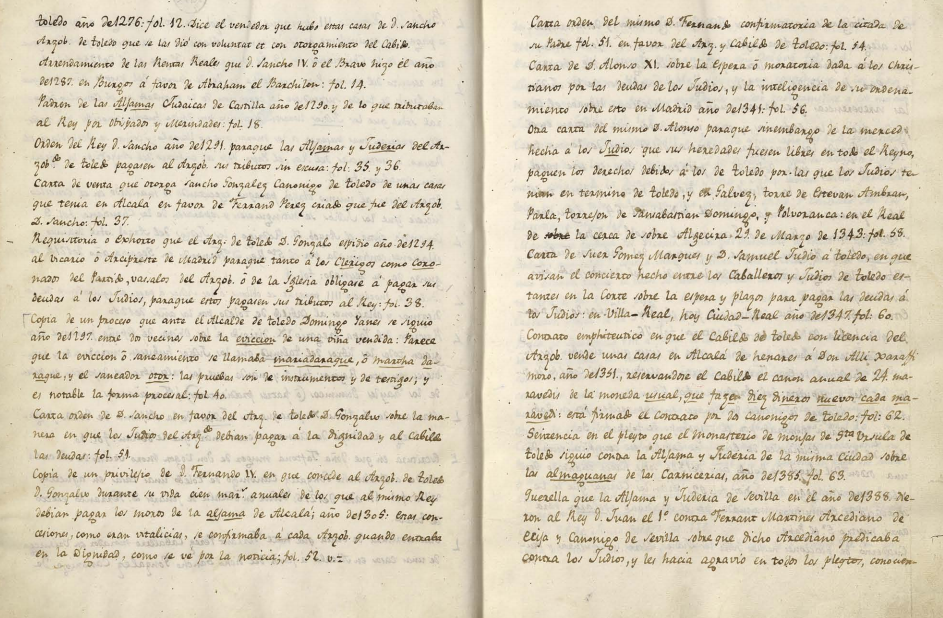 toledo año de1276: fol. 12. Dice el vendedor que hubo estas casas de d. Sancho
Arzob. de toledo que se las dió con voluntat et con otorgamiento del Cabildo.
Arrendamiento de las Rentas Reales que d. Sancho IV. ó el Bravo hizo el año
de1287. en Burgos á favor de Abraham el Barchilon: fol. 14.
Padron de las Aljamas Judaicas de Castilla año de1290. y de lo que tributaban
al Rey por Obispados y Merindades: fol. 18.
Orden del Rey d. Sancho año de1291. paraque las Aljamas y Juderias del Ar-
zob.do de toledo pagasen al Arzob. sus tributos sin escusa: fol: 35 y 36.
Carta de venta que otorga Sancho Gonzalez Canonigo de toledo de unas casas
que tenia en Alcalá en favor de Ferrand Perez criado que fue del Arzob.
D. Sancho: fol. 37.
Requisitoria ó Exhorto que el Arz. de toledo D. Gonzalo espidio año de1294.
al vicario ó Arcipreste de Madrid paraque tanto á los Clerigos como Coro-
nados del Partido, vasalos del Arzob. ó de la Iglesia obligase á pagar sus
deudas á los Judios, paraque estos pagasen sus tributos al Rey: fol. 38.
Copia de un proceso que ante el Alcalde de toledo Domingo Yanes se siguio
año de1297. entre dos vecinos sobre la eviccion de una viña vendida: Parece
que la eviccion ó saneamiento se llamaba mariadaraque, ó marcha da-
raque, y el saneador otor: las pruebas son de instrumentos y de testigos; y
es notable la forma procesal: fol. 40.
Carta orden de D. Sancho en favor del Arz. de toledo D. Gonzalvo sobre la ma-
nera en que los Judios del Arz.do debian pagar á la dignidad y al Cabildo
las deudas: fol. 51.
Copia de un privilejio de d. Fernando IV. en que concede al Arzob. de Toledo
d. Gonzalvo durante su vida cien mar.s anuales de los que al mismo Rey
debian pagar los moros de la aljama de Alcalá; año de1305: Estas con-
cesiones, como eran vitalicias, se confirmaba á cada Arzob. quando entraba
en la Dignidad, como se vé por la noticia; fol. 52. v.=
Carta orden del mismo D. Fernando confirmatoria de la citada de
su Padre fol. 51. en favor del Arz. y Cabildo de toledo: fol. 54.
Carta de D. Alonso XI. sobre la espera ó moratoria dada á los Chris-
tianos por las deudas de los Judios, y la inteligencia de su ordena-
miento sobre esto en Madrid año de1341: fol. 56.
Otra carta del mismo D. Alonso paraque sinembargo de la merced
hecha á los Judios que sus heredades fuesen libres en todo el Reyno,
paguen los derechos debidos á los de toledo por las que los Judios te-
nian en termino de toledo, y en Galvez, torre de Estevan Ambran,
Parla, torrejon de Sansabastian Domingo, y Polvoranca: en el Real
de sobre la cerca de sobre Algecira 29. de Marzo de 1343: fol. 58.
Carta de Suer Gomez Marques y D. Samuel Judio á toledo, en que
avisan el concierto hecho entre los Caballeros y Judios de toledo es-
tantes en la Corte sobre la espera y plazos para pagar las deudas á
los Judios: en Villa-Real, hoy Ciudad-Real año de1347. fol. 60.
Contrato emphiteutico en que el Cabildo de toledo con licencia del
Arzob. vende unas casas en Alcalá de henares á Don Alli Xarafi
moro, año de1351., reservandose el Cabildo el canon anual de 24. ma-
ravedis de la moneda usual, que fazen diez dineros nuevos cada ma-
ravedi: está firmado el contrato por dos canonigos de toledo: fol: 62.
Sentencia en el pleyto que el monasterio de monjas de Sta Ursula de
toledo siguio contra la Aljama y Juderia de la misma Ciudad sobre
las almaguanas de las Carnicerias, año de1385. fol. 63.
Querella que la Aljama y Juderia de Sevilla en el año de1388. die-
ron al Rey d. Juan el 1º contra Ferrant Martines Arcediano de
Ecija y Canonigo de Sevilla sobre que dicho Arcediano predicaba
contra los Judios, y les hacia agravio en todos los pleytos, conocien-